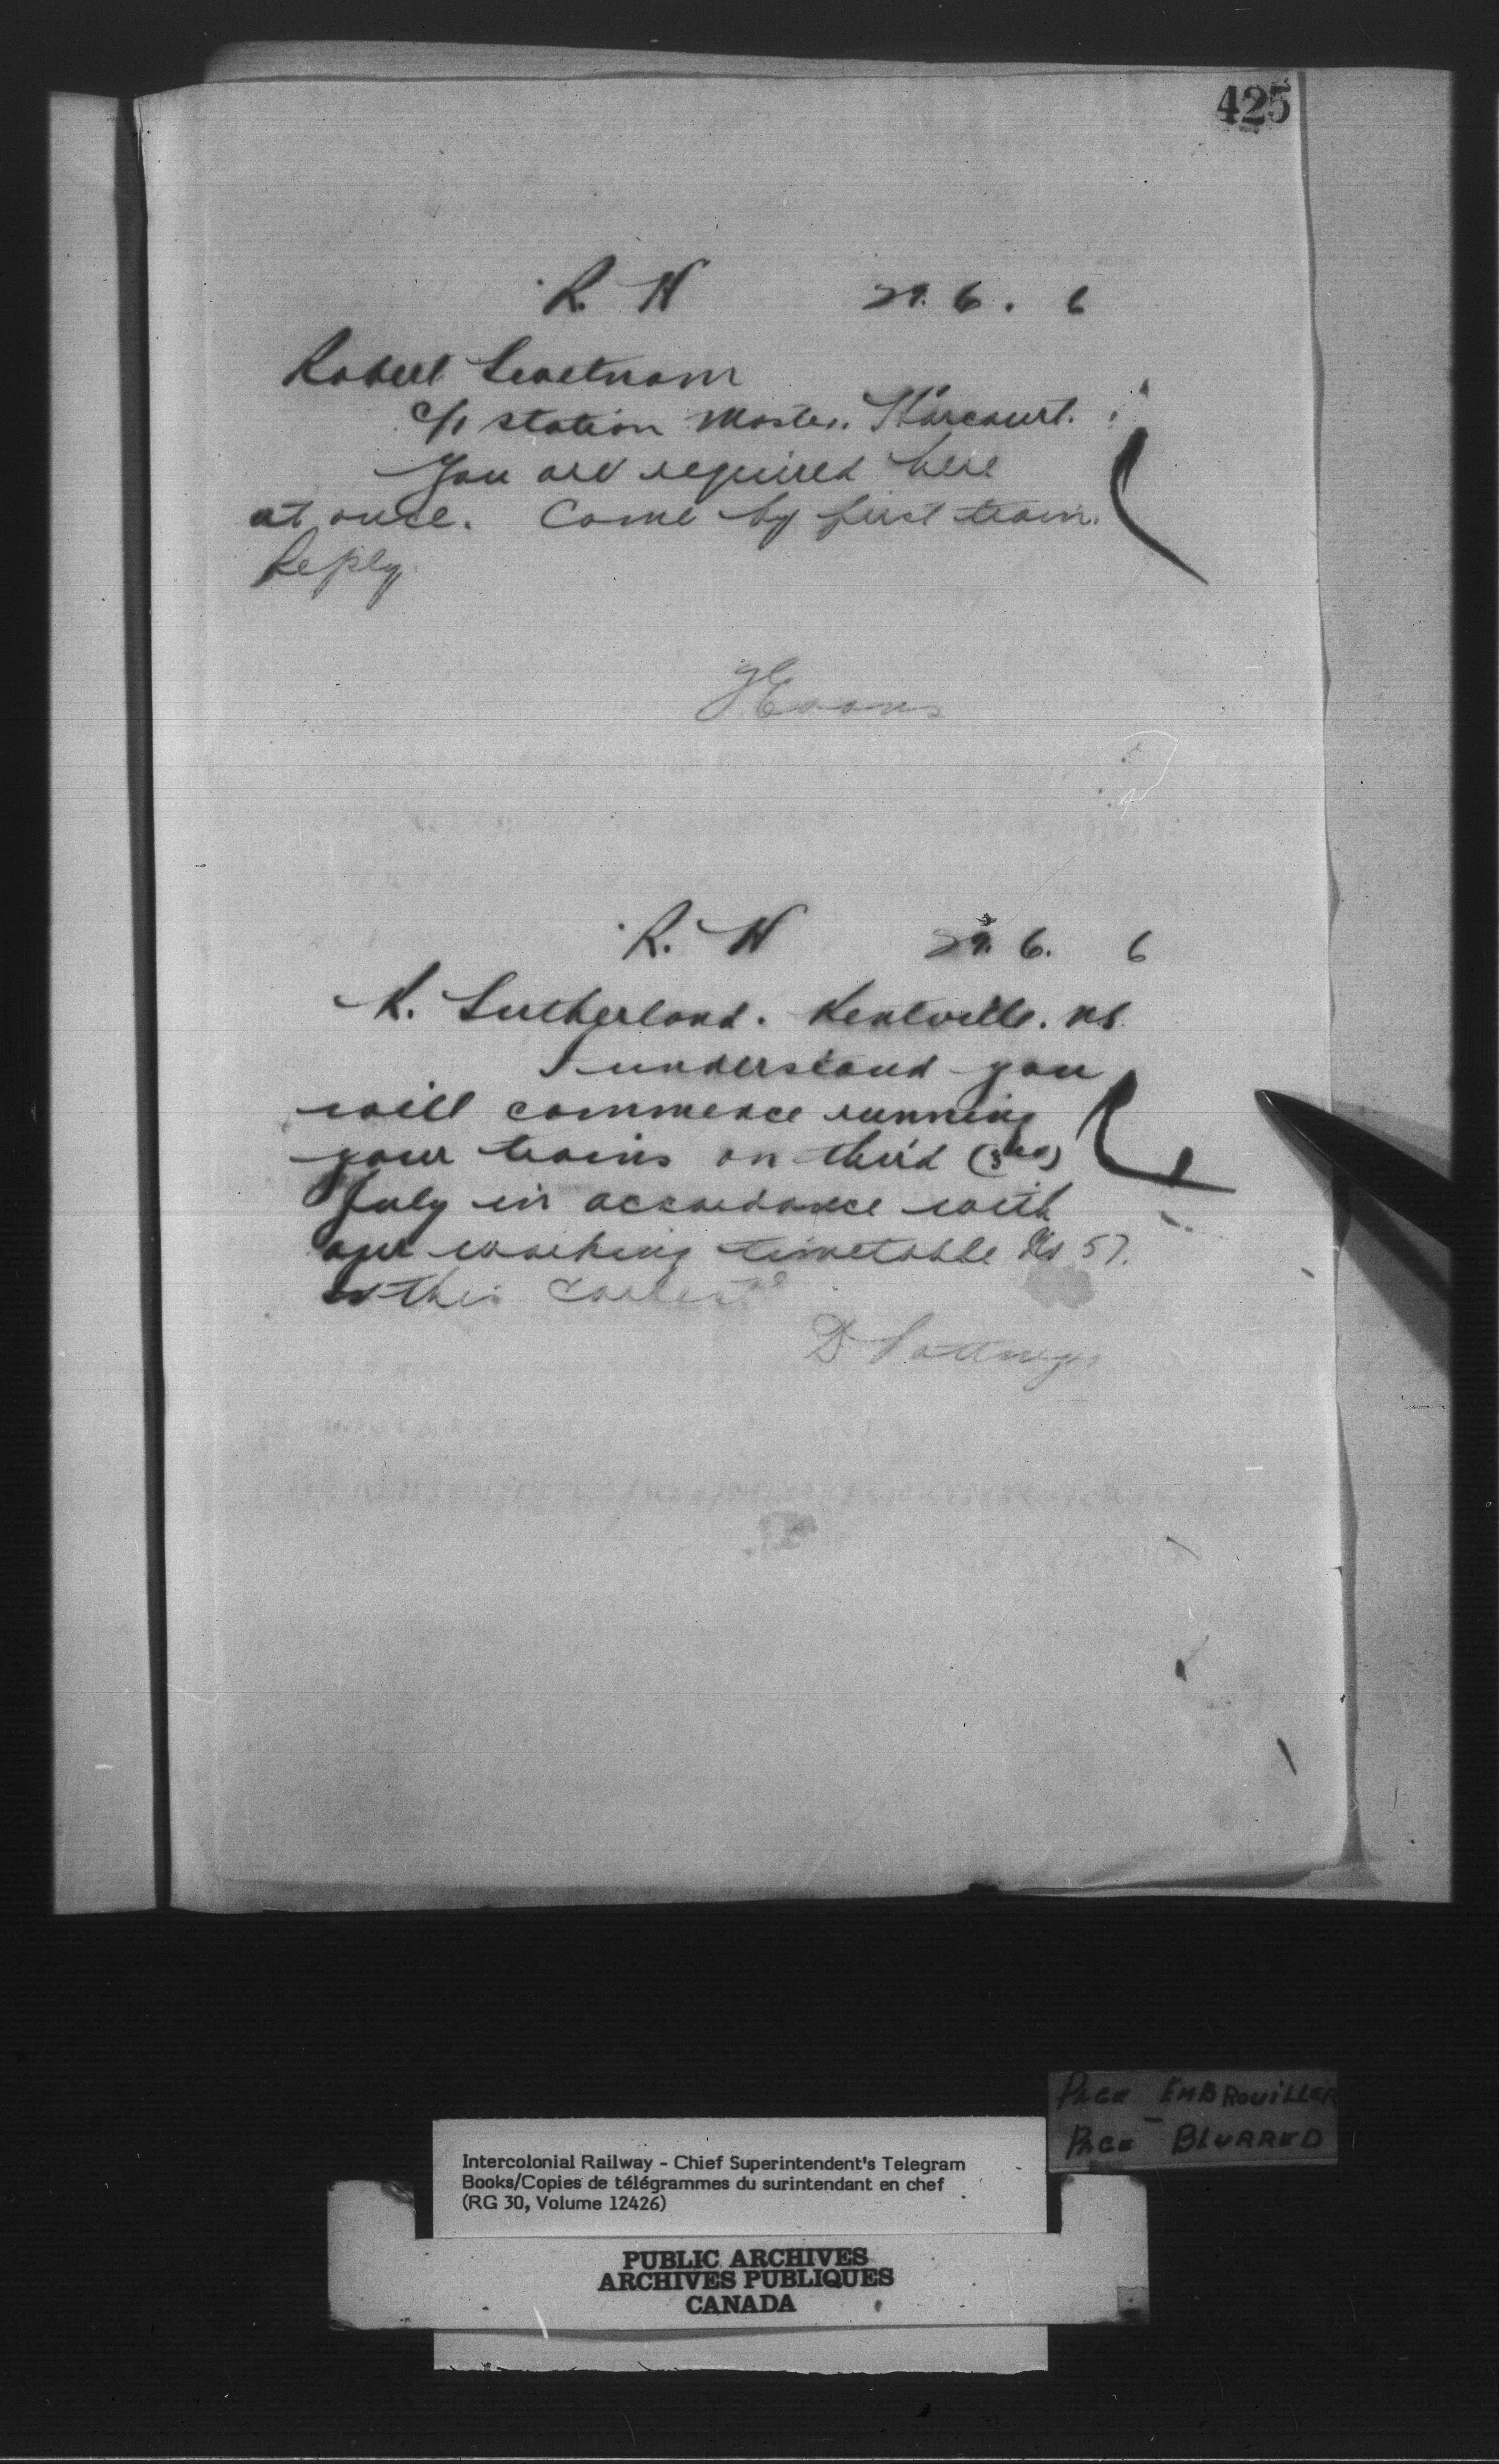 425
R. N 29. 6. 6
Robert
c/o station Master. Harcourt.
You are required here
at once. Come by first train.
Reply
Evans
R. N 29. 6. 6
K. Sutherland. Kentville. NS.
I understand you
will commence running
your trains on third (3rd)
July in accordance with
our working timetable No 57.
Is this correct?
D Pottinger
PAGE EMBROUILLER
PAGE BLURRED
Intercolonial Railway - Chief Superintendent's Telegram
Books/Copies de télégrammes du surintendant en chef
(RG 30, Volume 12426)
PUBLIC ARCHIVES
ARCHIVES PUBLIQUES
CANADA